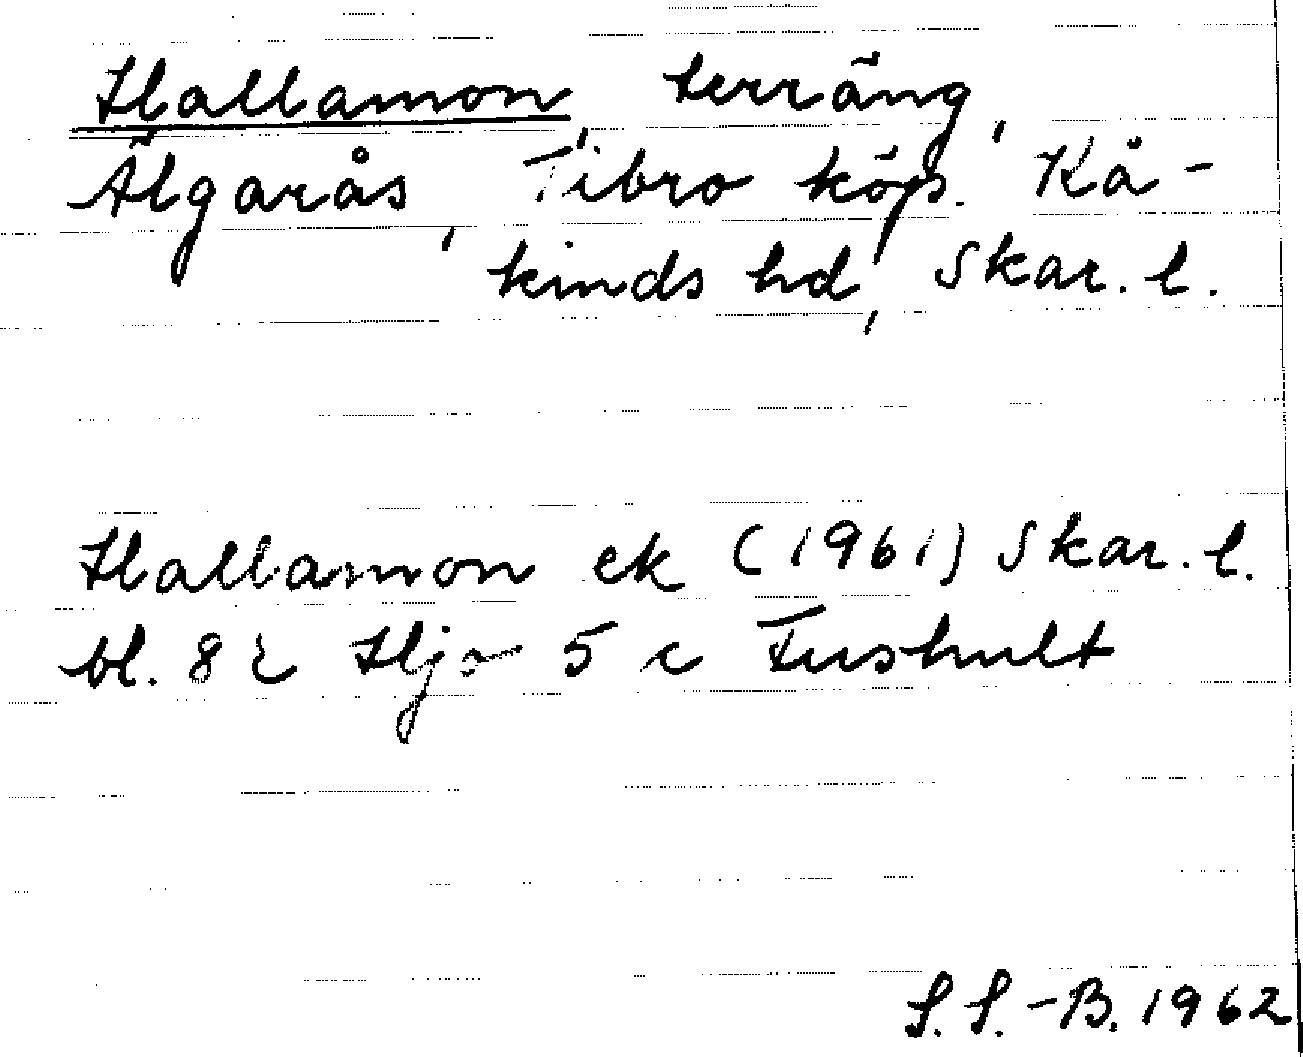 Hallamon, terräng,
Älgarås, Tibro köp. Kå-
kinds hd, Skar. l.
Hallamon ek (1961) Skar. l.
bl. 8 E Hjo 5 c Fushult
S. S.-B. 1962